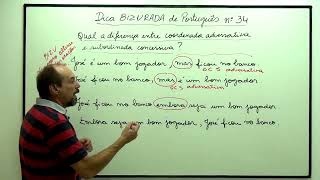 Dica BIZURADA de Português nº 34
Qual a diferença entre coordenada adversativa
e subordinada concessiva?
José é um bom jogador, mas ficou no banco.
OCS adversativa
José ficou no banco, mas é um bom jogador.
OCS adversativa
José ficou no banco embora seja um bom jogador.
Embora seja um bom jogador, José ficou no banco.